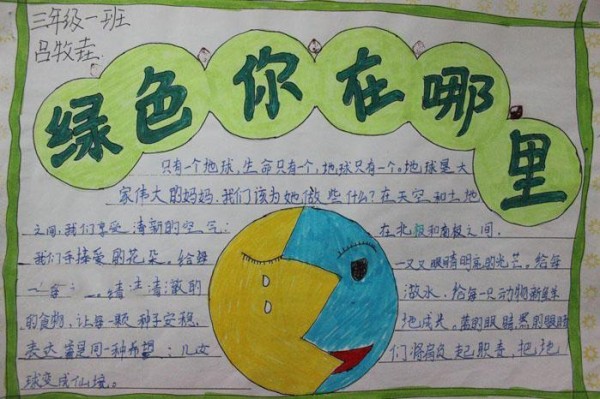 三年级一班
吕牧垚
绿色你在哪里
只有一个地球,生命只有一个,地球只有一个。地球是大
家伟大的妈妈,我们该为她做些什么?在天空和土地
之间,我们享受清新的空气;在北极和南极之间,
我们手接爱的花朵。给每一双眼睛明亮的光芒。给每
清澈的水,给每一只动物新鲜
的食物,让每一颗种子安稳地成长。蓝的眼睛,黑的眼睛
表达着同一种希望:儿女们将肩负起职责,把地
球变成仙境。